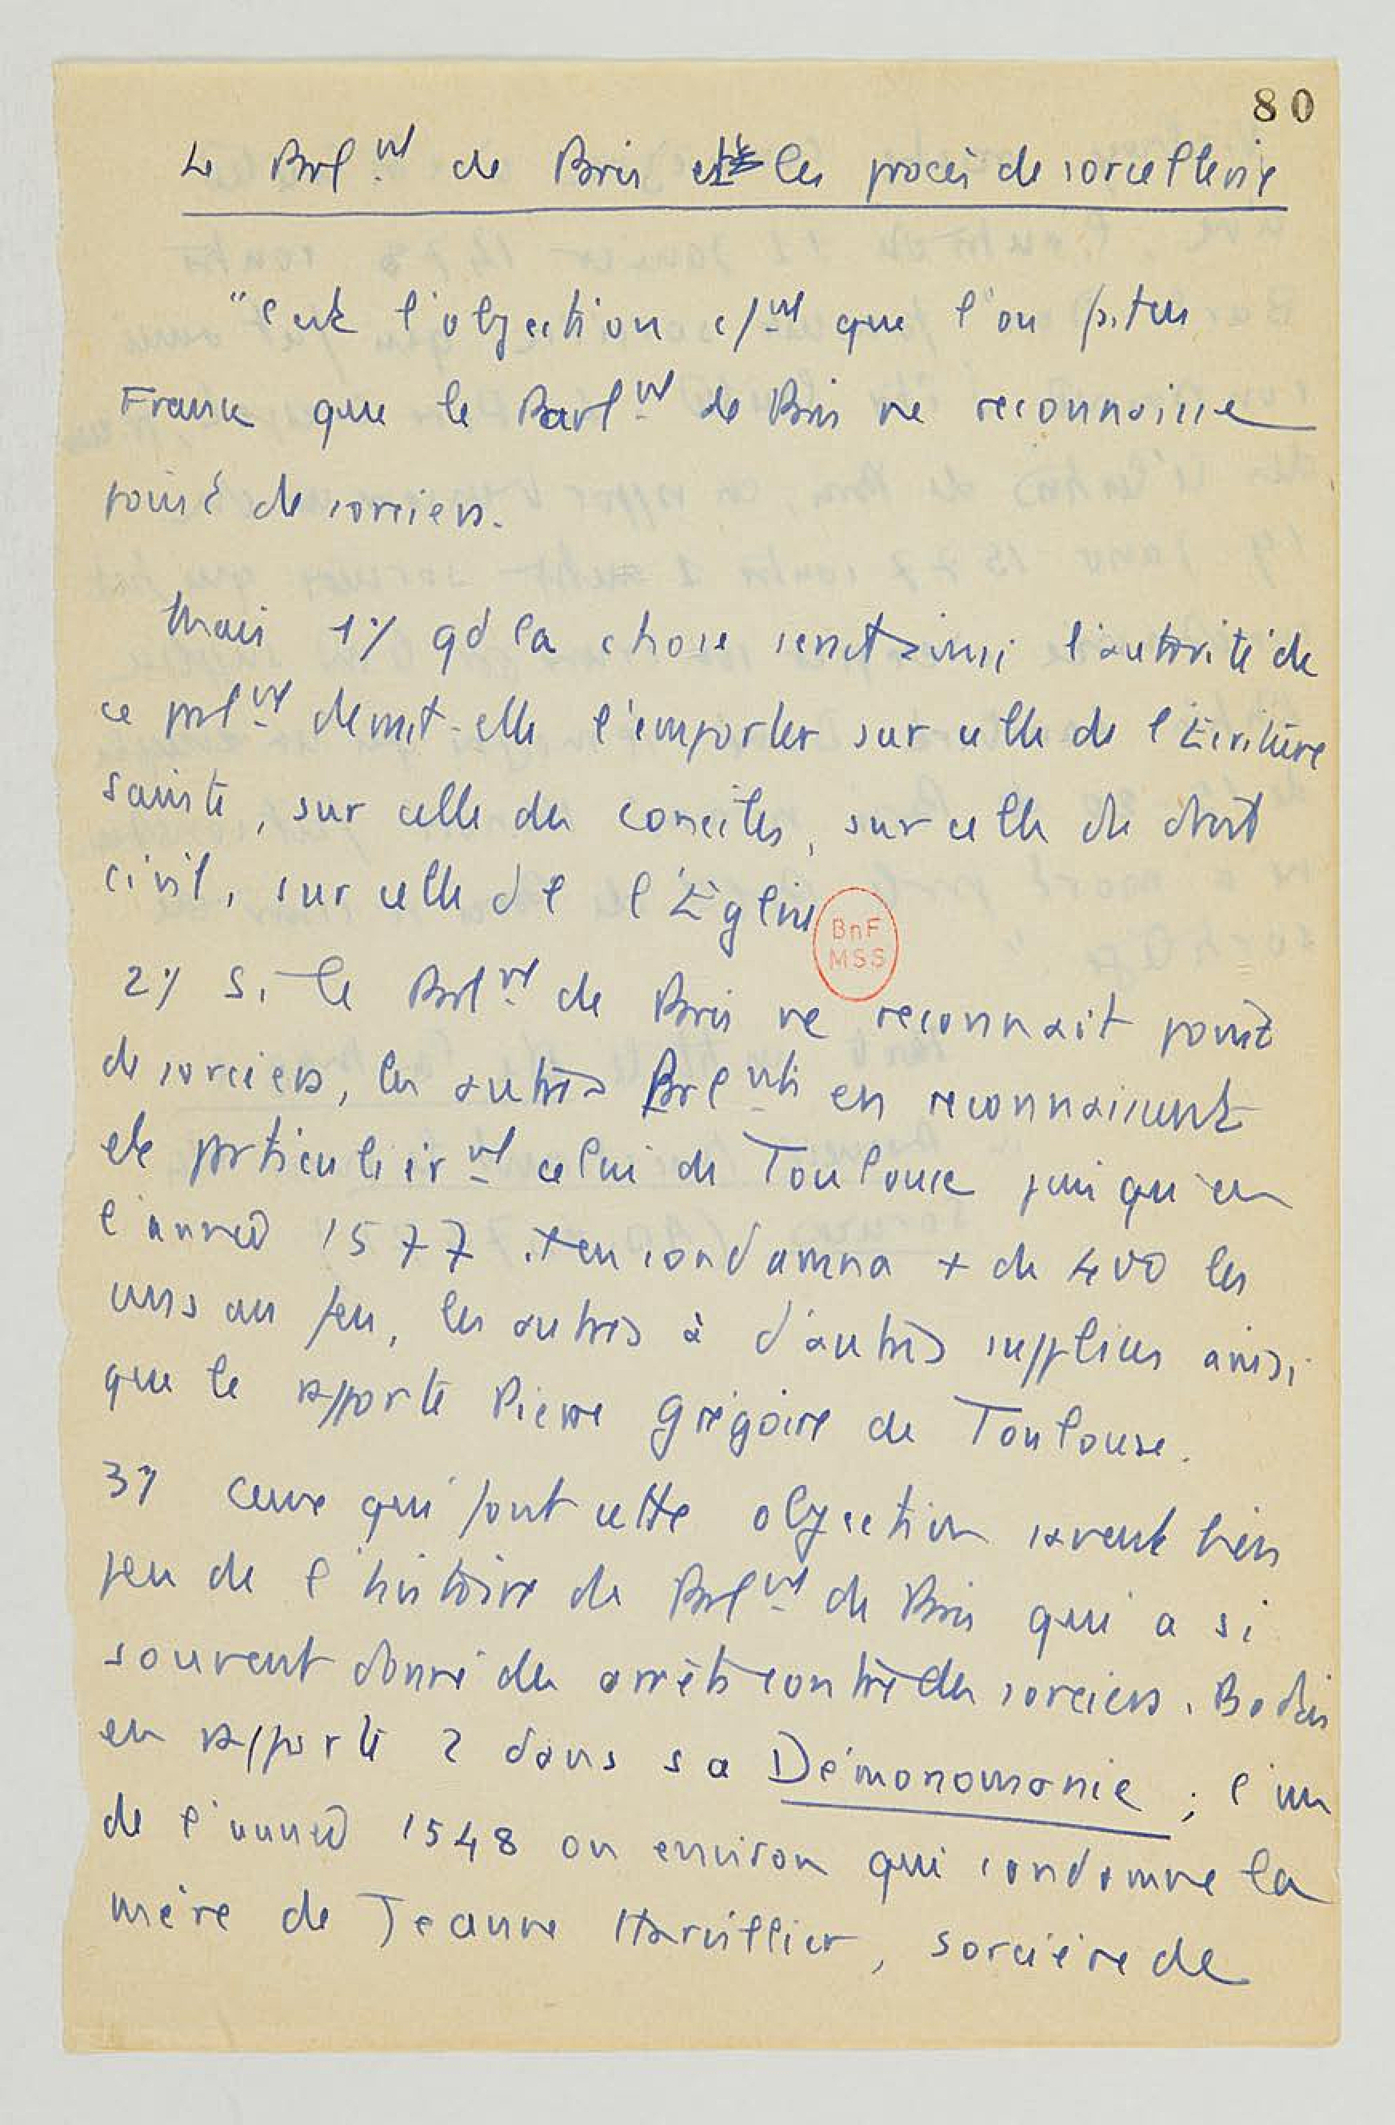 80
Le Parl.nt de Paris et les procès de sorcellerie
"C'est l'objection c/nt que l'on f. tus
France que le Parl.nt de Paris ne reconnaisse
point de sorciers.
Mais 1°/ qd la chose serait ainsi l'autorité de
ce parl.nt devrait-elle l'emporter sur celle de l'Ecriture
sainte, sur celle des conciles, sur celle du droit
civil, sur celle de l'Eglise
BnF
MSS
2°/ Si le Parl.nt de Paris ne reconnait point
de sorciers, les autres Parl.nts en reconnaissent
et particulièr.nt celui de Toulouse puisqu'en
l'année 1577 il en condamna + de 400 les
uns au feu, les autres à d'autres supplices ainsi
que le rapporte Pierre Grégoire de Toulouse.
3°/ Ceux qui font cette objection savent bien
peu de l'histoire du Parl.nt de Paris qui a si
souvent donné des arrêts contre des sorciers. Bodin
en rapporte 2 dans sa Démonomanie ; l'un
de l'année 1548 ou environ qui condamne la
mère de Jeanne Harvillier, sorcière de